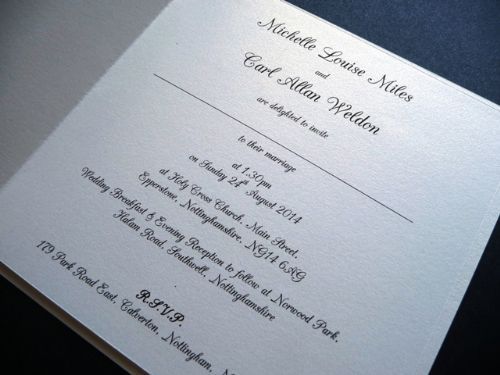 Michelle Louise Miles
and
Carl Allan Weldon
are delighted to invite
to their marriage
at 1.30pm
on Sunday 24th August 2014
at Holy Cross Church, Main Street,
Epperstone, Nottinghamshire, NG14 6AG
Wedding Breakfast & Evening Reception to follow at Norwood Park,
Halam Road, Southwell, Nottinghamshire
R.S.V.P.
179 Park Road East, Calverton, Nottingham,